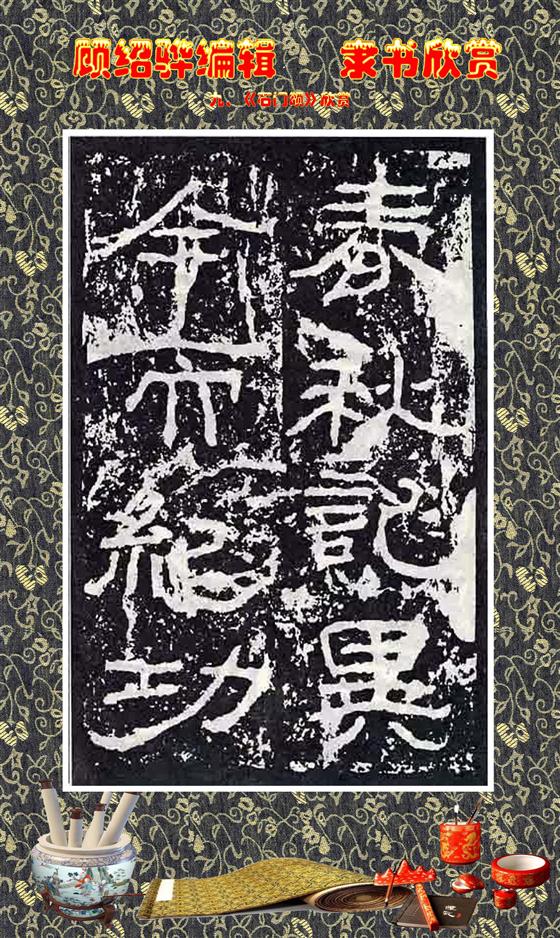 顾绍骅编辑 隶书欣赏
九、《石门颂》欣赏
春秋記異
今而紀功